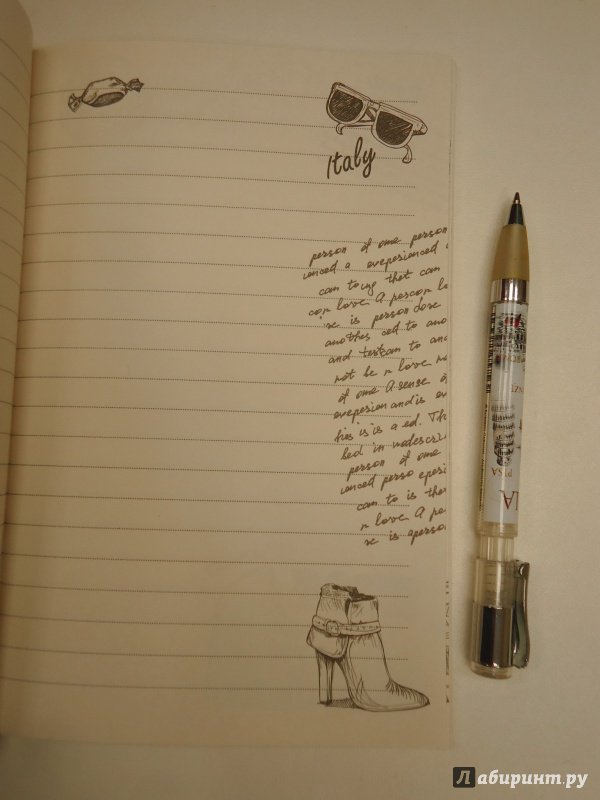 Italy
person of one person
ienced a eveperienced
cam to ing that cam
con love A pescon lo
se is person dose
anothes ced to ano
and testcam to and
not be n love no
of one A sense o
eveperion and is ev
ties is is a ed. Th
bed in nodescri
person of one
ienced perso eperi
cam to is the
n love A pe
se is aperson
PISA
Лабиринт.ру